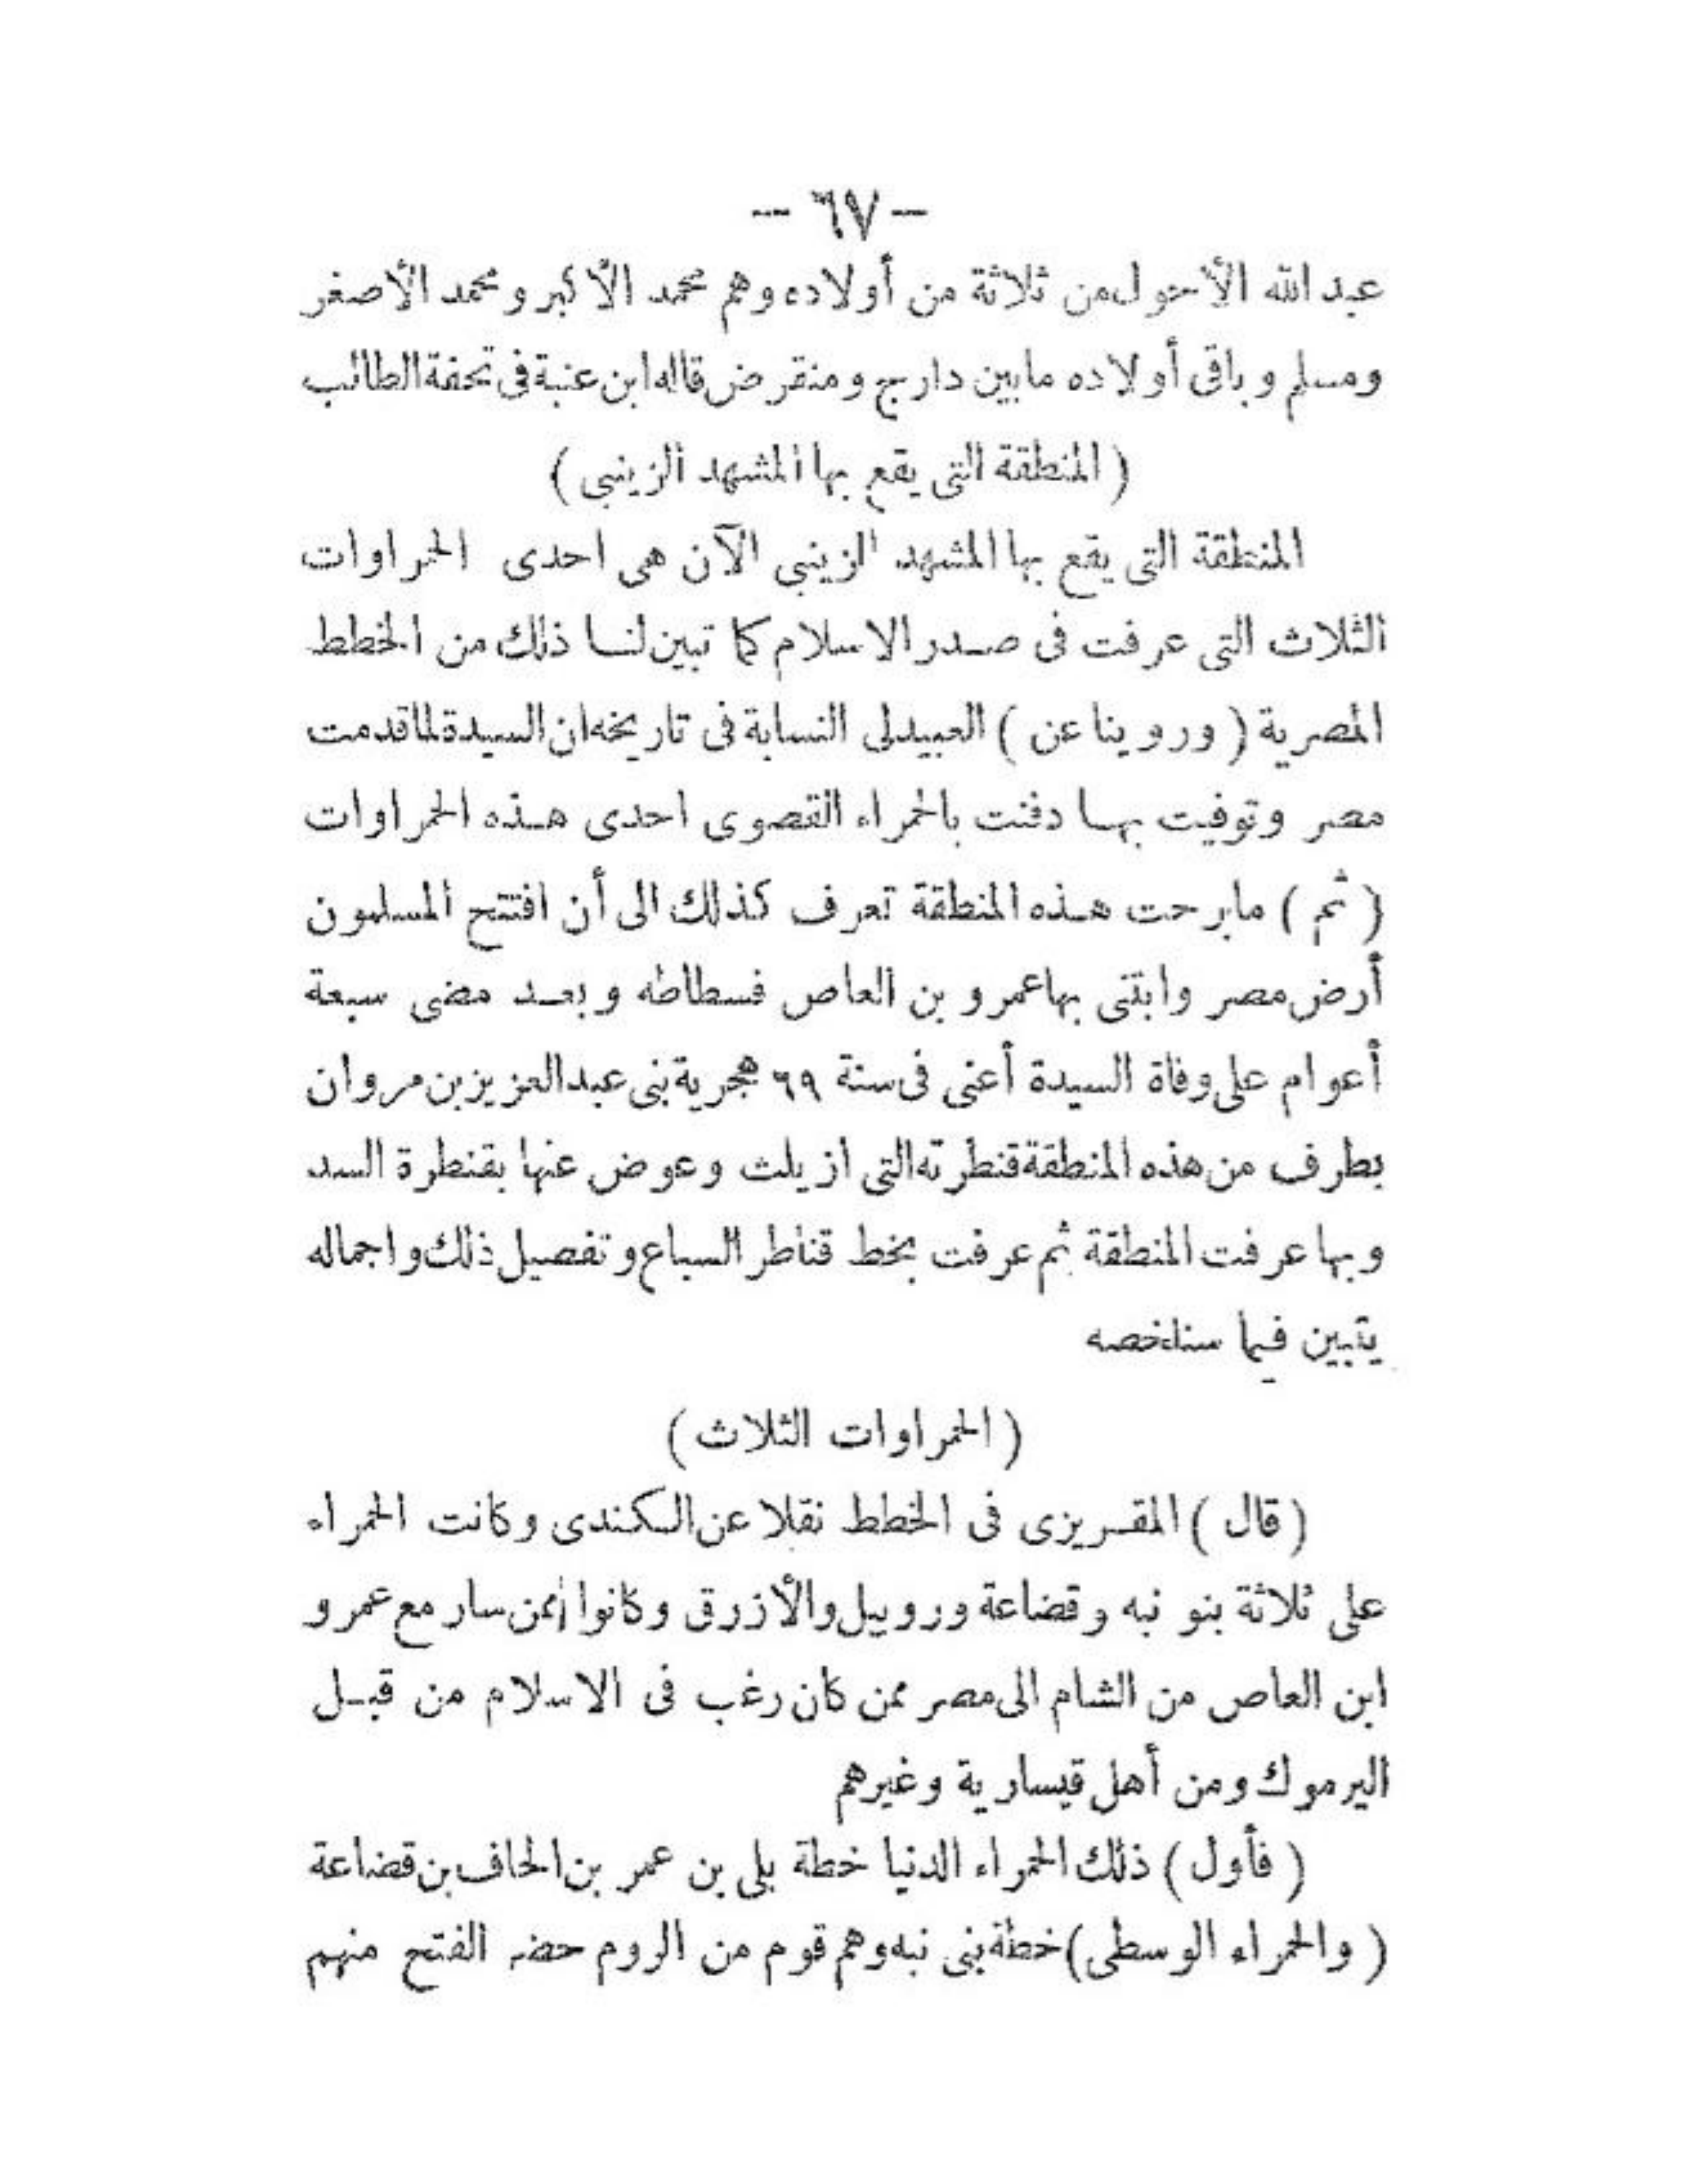 — ٦٧ —
عبد الله الأحول من ثلاثة من أولاده وهم محمد الأكبر ومحمد الأصغر
ومسلم وباقى أولاده مابين دارج ومنقرض قاله ابن عنبة فى تحفة الطالب
( المنطقة التى يقع بها المشهد الزينبى )
المنطقة التى يقع بها المشهد الزينبى الآن هى احدى الحمراوات
الثلاث التى عرفت فى صدر الاسلام كما تبين لنا ذلك من الخطط
المصرية ( وروينا عن ) العبيدلى النسابة فى تاريخه ان السيدة لما قدمت
مصر وتوفيت بها دفنت بالحمراء القصوى احدى هذه الحمراوات
( ثم ) مابرحت هذه المنطقة تعرف كذلك الى أن افتتح المسلمون
أرض مصر وابتنى بها عمرو بن العاص فسطاطه وبعد مضى سبعة
أعوام على وفاة السيدة أعنى فى سنة ٦٩ هجرية بنى عبد العزيز بن مروان
بطرف من هذه المنطقة قنطرته التى ازيلت وعوض عنها بقنطرة السد
وبها عرفت المنطقة ثم عرفت بخط قناطر السباع وتفصيل ذلك واجماله
يتبين فيما سنلخصه
( الحمراوات الثلاث )
( قال ) المقريزى فى الخطط نقلا عن الكندى وكانت الحمراء
على ثلاثة بنو نبه وقضاعة وروبيل والأزرق وكانوا ممن سار مع عمرو
ابن العاص من الشام الى مصر ممن كان رغب فى الاسلام من قبل
اليرموك ومن أهل قيسارية وغيرهم
( فأول ) ذلك الحمراء الدنيا خطة بلى بن عمر بن الحاف بن قضاعة
( والحمراء الوسطى ) خطة بنى نبه وهم قوم من الروم حضر الفتح منهم